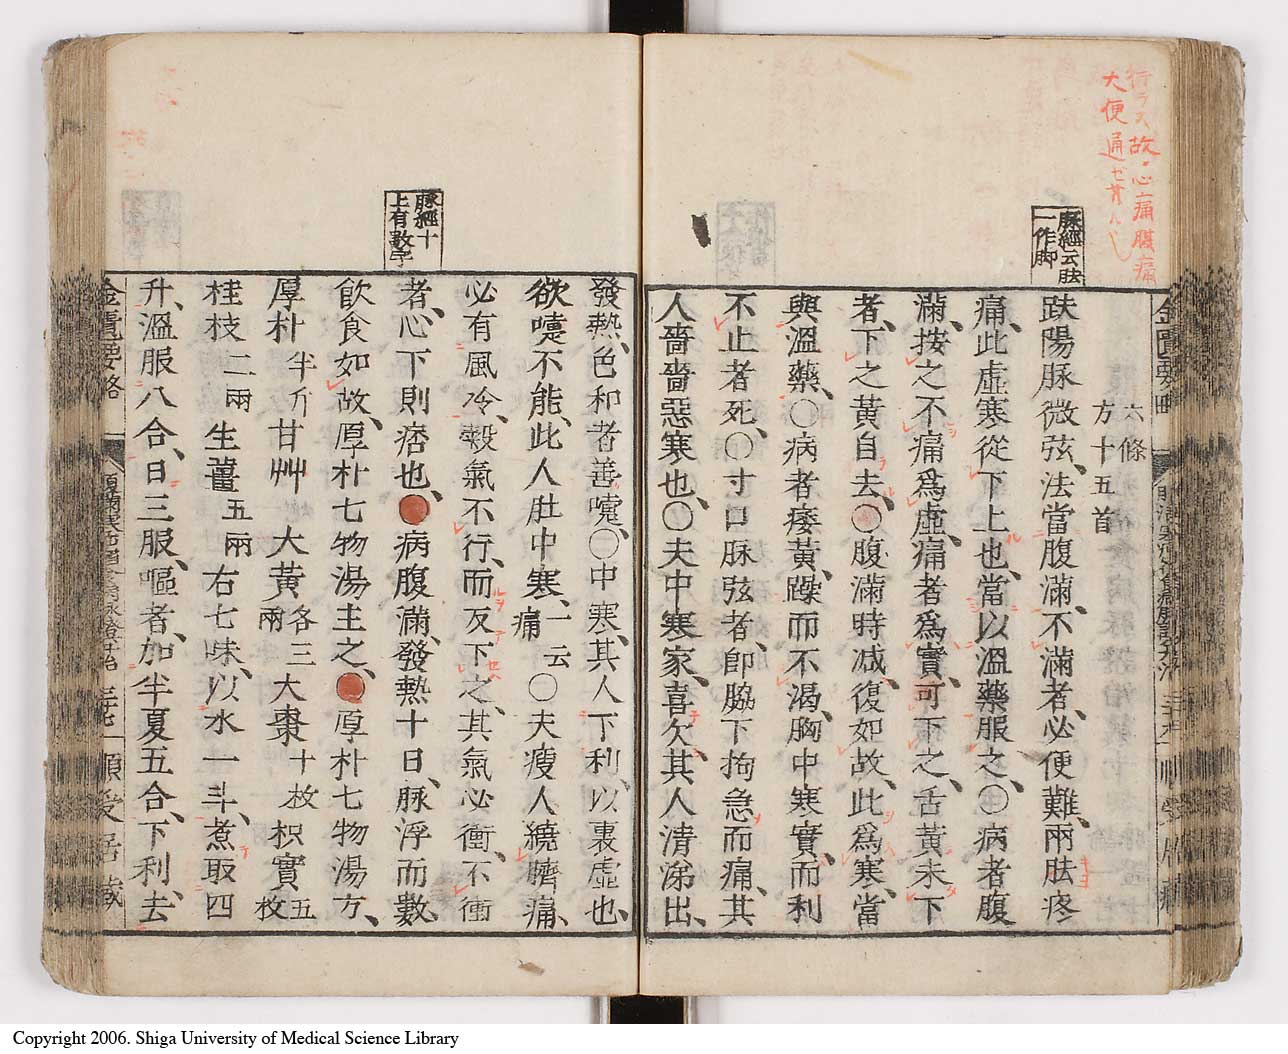 行ラス故心痛腹痛
大便通
脉經云胠
一作脚
六條
方十五首
趺陽脉微弦、法當腹滿、不滿者、必便難、兩胠疼
痛、此虛寒從下上也、當以溫藥服之、〇病者腹
滿、按之不痛爲虛、痛者爲實、可下之、舌黃未下
者、下之黃自去、〇腹滿時减、復如故、此爲寒、當
與溫藥、〇病者痿黃、躁而不渴、胸中寒實、而利
不止者死、〇寸口脉弦者、卽脇下拘急而痛、其
人嗇嗇惡寒也、〇夫中寒家、喜欠、其人清涕出、
脉經十
上有數字
發熱、色和者善嚏、〇中寒、其人下利、以裏虛也、
欲嚏不能、此人肚中寒、一云痛〇夫瘦人繞臍痛、
必有風冷、穀氣不行、而反下之、其氣必衝、不衝
者、心下則痞也、●病腹滿、發熱十日、脉浮而數、
飲食如故、厚朴七物湯主之、●厚朴七物湯方、
厚朴半斤甘艸 大黃各三兩大棗十枚枳實五枚
桂枝二兩生薑五兩右七味、以水一斗、煮取四
升、溫服八合、日三服、嘔者、加半夏五合、下利、去
金匱要略